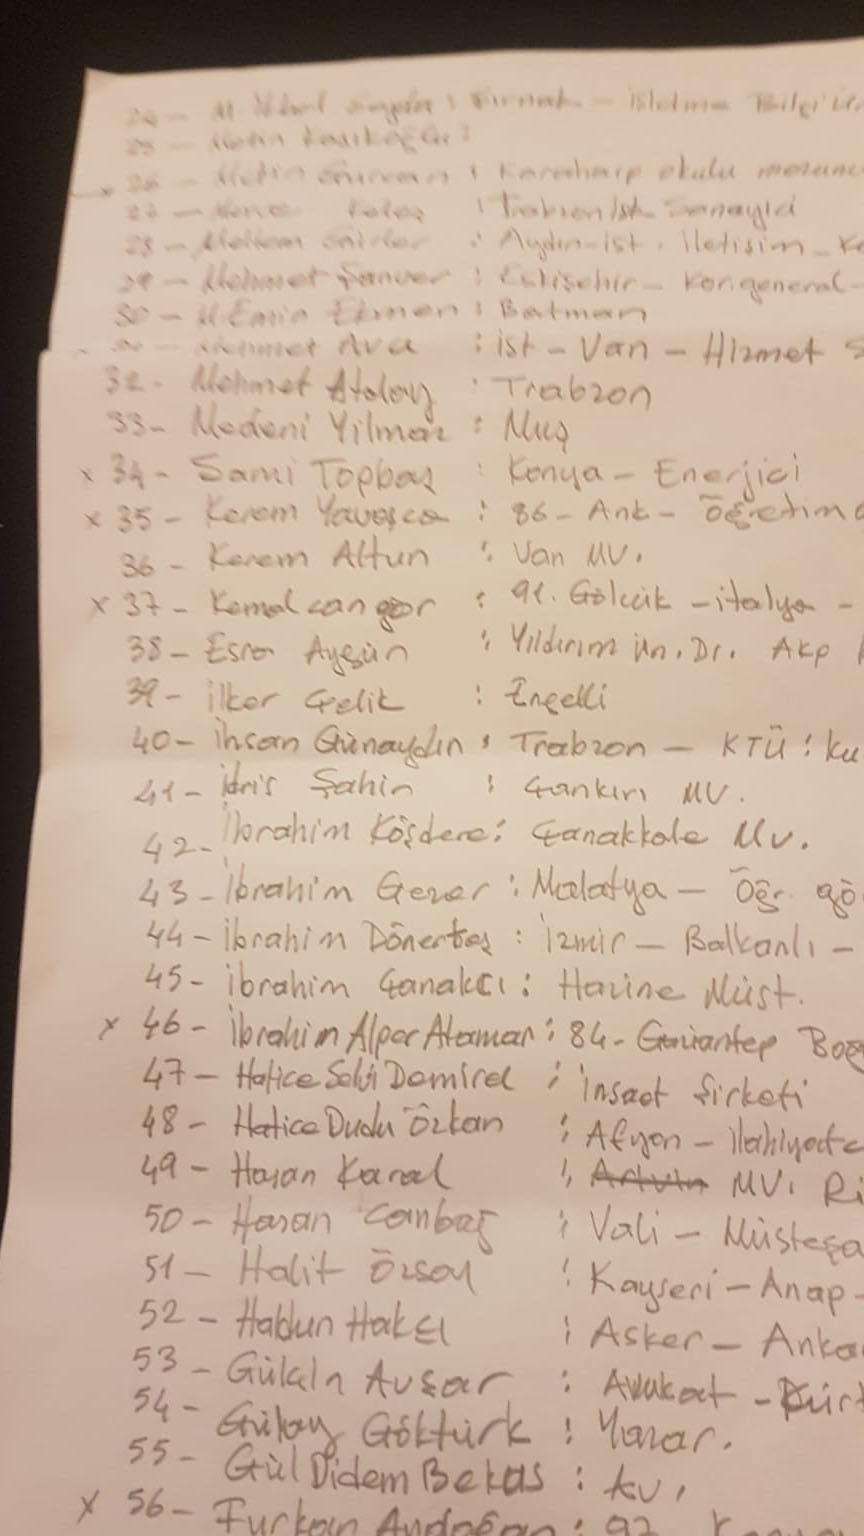 24 - M. : Şırnak - İşletme Bilgi Ün
25 - Metin Kaşıkoğlu :
x 26 - Metin Gürcan : Karaharp okulu mezunu
27 - Merve Keleş : Trabzon ist. Sanayici
28 - Meltem : Aydın - ist. iletişim - K
29 - Mehmet Şanver : Eskişehir - Korgeneral -
30 - M. Emin Ekmen : Batman
Mehmet Avcı : ist - Van - Hizmet S
32 - Mehmet Atalay : Trabzon
33 - Medeni Yılmaz : Muş
x 34 - Sami Topbaş : Konya - Enerjici
x 35 - Kerem Yavaşça : 86 - Ank - Öğretim
36 - Kerem Altun : Van MV.
x 37 - Kemal can gör : 91. Gölcük - italya -
38 - Esra Aygün : Yıldırım ün. Dr. AKP
39 - ilker Çelik : Engelli
40 - ihsan Günaydın : Trabzon - KTÜ : ku
41 - idris Şahin : Çankırı MV.
42 - ibrahim Köşdere : Çanakkale Mv.
43 - ibrahim Gezer : Malatya - Öğr. gö
44 - ibrahim Dönertaş : izmir - Balkanlı -
45 - ibrahim Çanakcı : Hazine Müst.
x 46 - ibrahim Alper Ataman : 84 - Gaziantep Boğ
47 - Hatice Selvi Demirel : inşaat Şirketi
48 - Hatice Dudu Özkan : Afyon - ilahiyatc
49 - Hasan Karal : Artvin MV. Ri
50 - Hasan Canbaz : Vali - Müsteşa
51 - Halit Özsoy : Kayseri - Anap -
52 - Haldun Hakcı : Asker - Anka
53 - Gülçin Avşar : Avukat - Kürt
54 - Gülay Göktürk : Yazar.
55 - Gül Didem Bekas : Av.
x 56 - Furkan Andoğan : 92